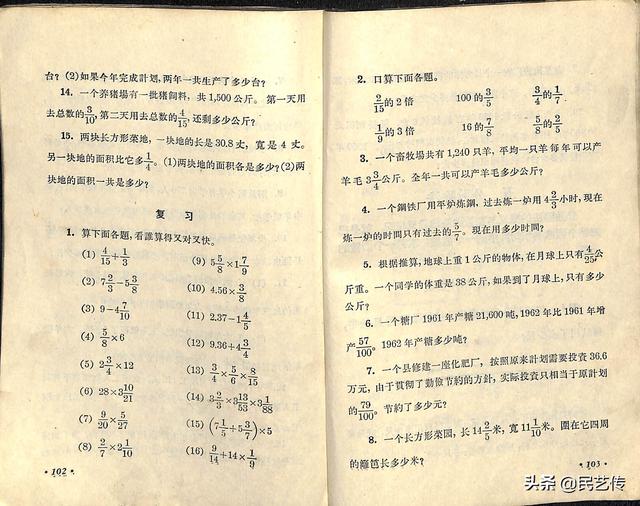 台？(2)如果今年完成計划，两年一共生产了多少台？
14. 一个养猪場有一批猪飼料，共1,500公斤。第一天用
去总数的3/10，第二天用去总数的4/15，还剩多少公斤？
15. 两块长方形菜地，一块地的长是30.8丈，寬是4丈。
另一块地的面积比它多1/4。(1)两块地的面积各是多少？(2)两
块地的面积一共是多少？
复习
1. 算下面各題，看誰算得又对又快。
(1) 4/15+1/3
(2) 7 2/3-5 3/8
(3) 9-4 7/10
(4) 5/8×6
(5) 2 3/4×12
(6) 28×3 10/21
(7) 9/20×5/27
(8) 2/7×2 1/10
(9) 5 5/8×1 7/9
(10) 4.56×3/8
(11) 2.37-1 4/5
(12) 9.36+4 3/4
(13) 3/4×5/6×8/15
(14) 3 2/3×3 13/53×3 1/88
(15) (7 1/5+5 3/7)×5
(16) 9/14+14×1/9
·102·
2. 口算下面各題。
2/15的2倍 100的3/5 3/4的1/7
1/9的3倍 16的7/8 5/8的2/5
3. 一个畜牧場共有1,240只羊，平均一只羊每年可以产
羊毛3 3/4公斤。全年一共可以产羊毛多少公斤？
4. 一个鋼铁厂用平炉炼鋼，过去炼一炉用4 2/3小时，现在
炼一炉的时間只有过去的5/7。现在用多少时間？
5. 根据推算，地球上重1公斤的物体，在月球上只有4/25公
斤重。一个同学的体重是38公斤，如果到了月球上，只有多少
公斤？
6. 一个糖厂1961年产糖21,600吨，1962年比1961年增
产57/100。1962年产糖多少吨？
7. 一个县修建一座化肥厂，按照原来計划需要投資36.6
万元，由于貫彻了勤儉节約的方針，实际投資只相当于原計划
的79/100。节約了多少元？
8. 一个长方形菜园，长14 2/5米，寬11 1/10米。围在它四周
的籬笆长多少米？
·103·
头条 @民艺传